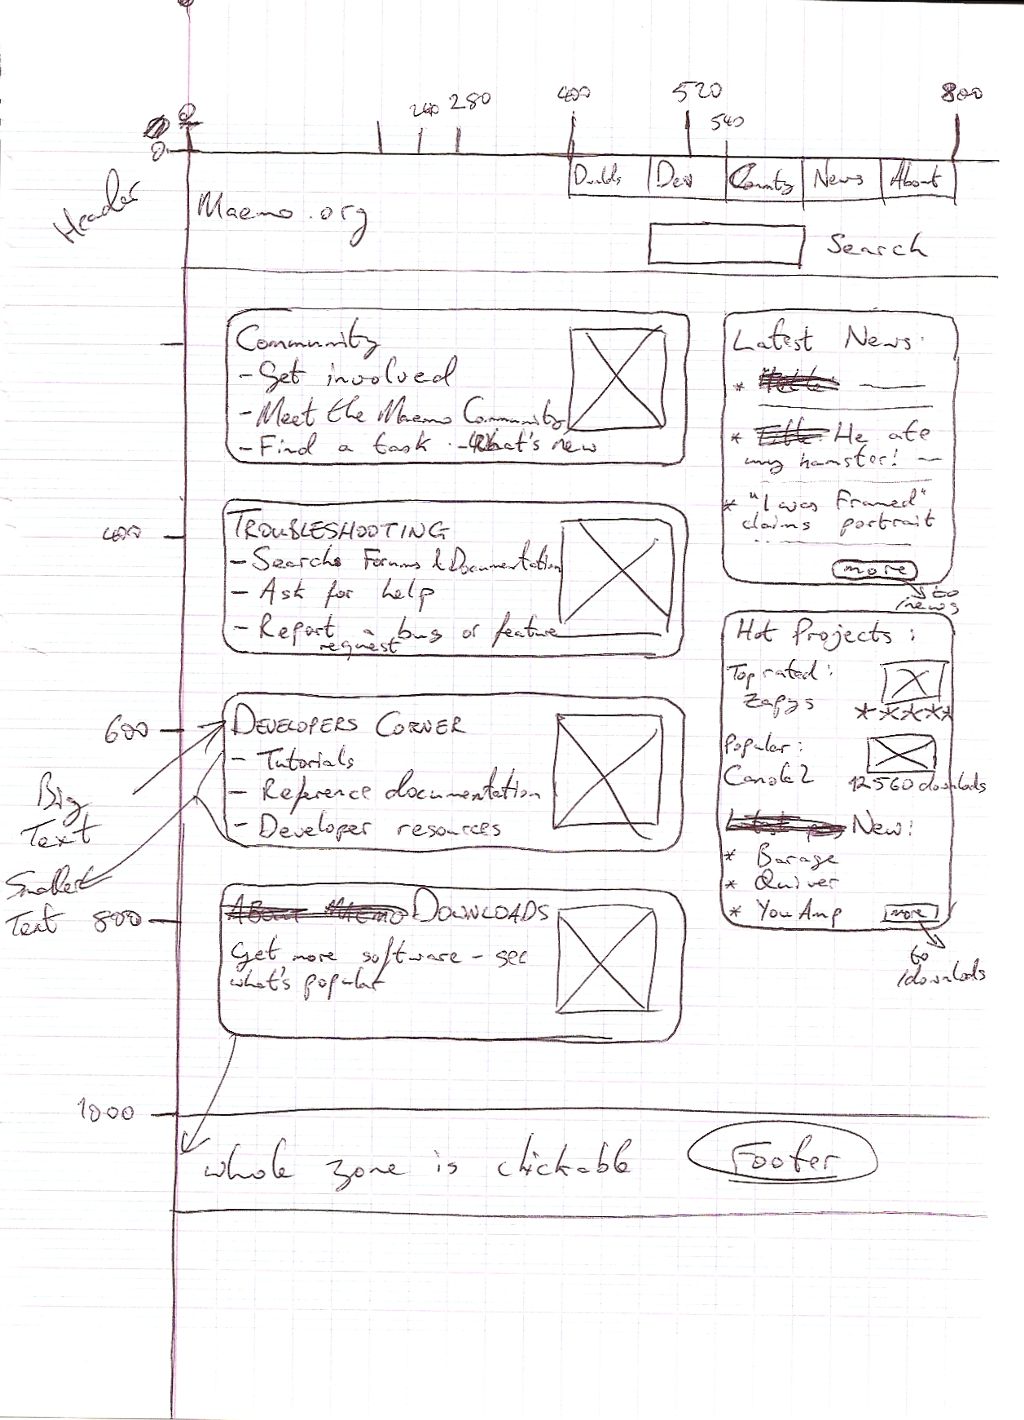 0
240 280 400 520 540 800
0
Header
Dwnlds Dev Comnty News About
Maemo.org
Search
Community
- Get involved
- Meet the Maemo Community
- Find a task - What's new
Latest News:
*
* He ate
my hamster!
* "I was Framed"
claims portrait
more
to
/news
400
TROUBLESHOOTING
- Search Forums & Documentation
- Ask for help
- Report a bug or feature
request
Hot Projects:
Top rated:
Zapys
*****
Popular:
Canola 2
42560 downloads
New:
* Barage
* Quiver
* You Amp
more
to
/downloads
600
DEVELOPERS CORNER
- Tutorials
- Reference documentation
- Developer resources
Big
Text
Smaller
Text
800
ABOUT MAEMO DOWNLOADS
Get more software - see
what's popular
1000
whole zone is clickable
Footer